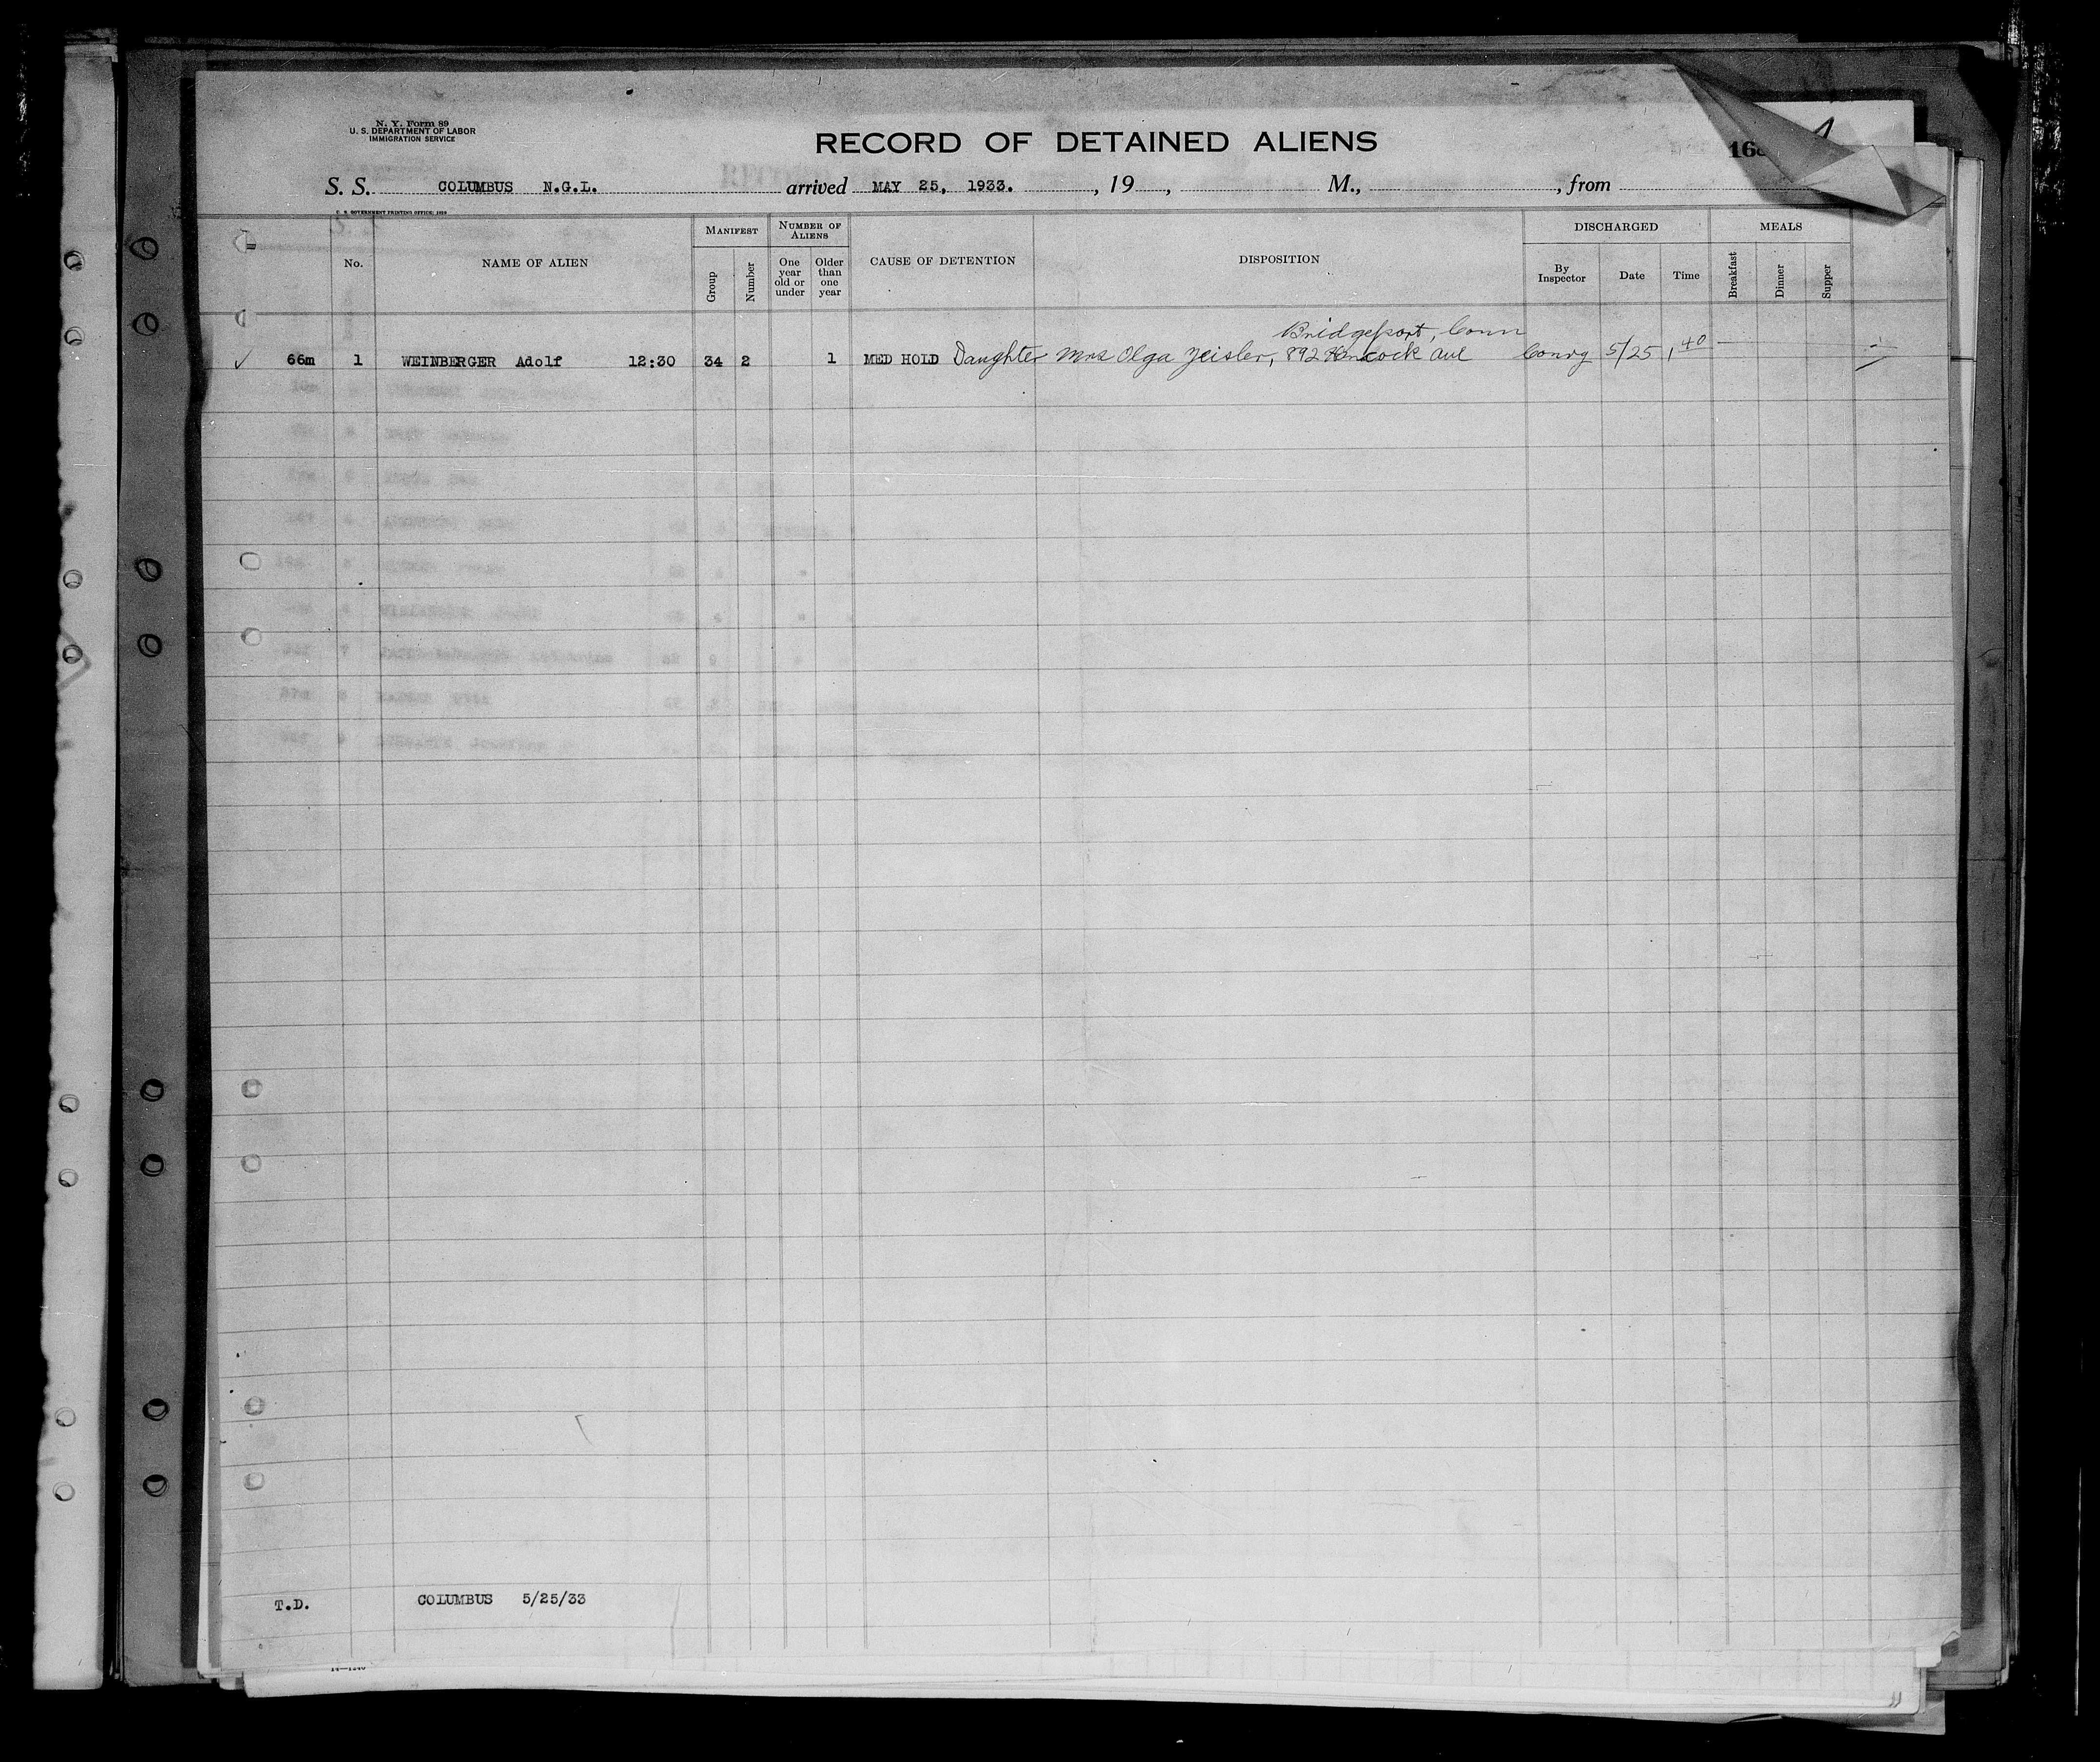 N. Y. Form 89
U. S. DEPARTMENT OF LABOR
IMMIGRATION SERVICE
RECORD OF DETAINED ALIENS
S. S. COLUMBUS N.G.L. arrived MAY 25, 1933. , 19 , M., , from
U. S. GOVERNMENT PRINTING OFFICE: 1929
No.
NAME OF ALIEN
MANIFEST
Group
Number
NUMBER OF ALIENS
One year old or under
Older than one year
CAUSE OF DETENTION
DISPOSITION
DISCHARGED
By Inspector
Date
Time
MEALS
Breakfast
Dinner
Supper
Bridgeport, Conn
66m 1 WEINBERGER Adolf 12:30 34 2 1 MED HOLD Daughter Mrs Olga Zeisler, 892 Hancock Ave 5/25 1 40
T.D. COLUMBUS 5/25/33